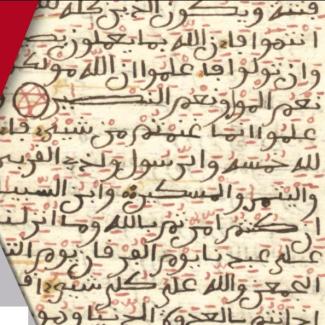 فتنة ويكون الدين كله لله
انتهوا فإن الله بما يعملون بصير
وإن تولوا فاعلموا أن الله موليكم
نعم المولى ونعم النصير
علموا أنما غنمتم من شيء فأن
لله خمسه وللرسول ولذي القربى
واليتمى والمسكين وابن السبيل
إن كنتم ءامنتم بالله وما أنزلنا
على عبدنا يوم الفرقان يوم التقى
الجمعن والله على كل شيء
إذ أنتم بالعدوة الدنيا وهم